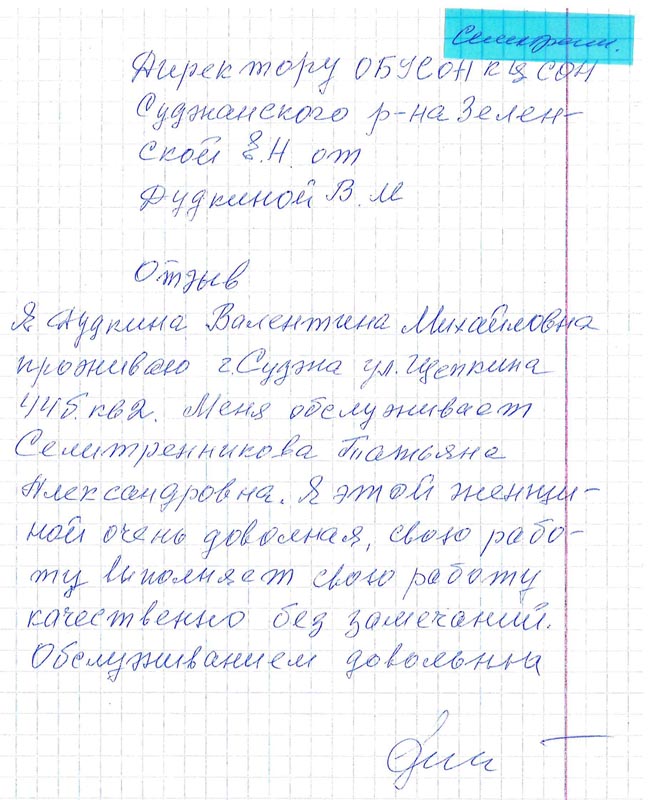 Директору ОБУСОН КЦСОН
Суджанского р-на Зелен-
ской Е.Н. от
Дудкиной В.М
Отзыв
Я Дудкина Валентина Михайловна
проживаю г.Суджа ул.Щепкина
44б. кв2. Меня обслуживает
Селитренникова Татьяна
Александровна. Я этой женщи-
ной очень доволная, свою рабо-
ту виполняет свою работу
качественно без замечаний.
Обслуживанием довольна